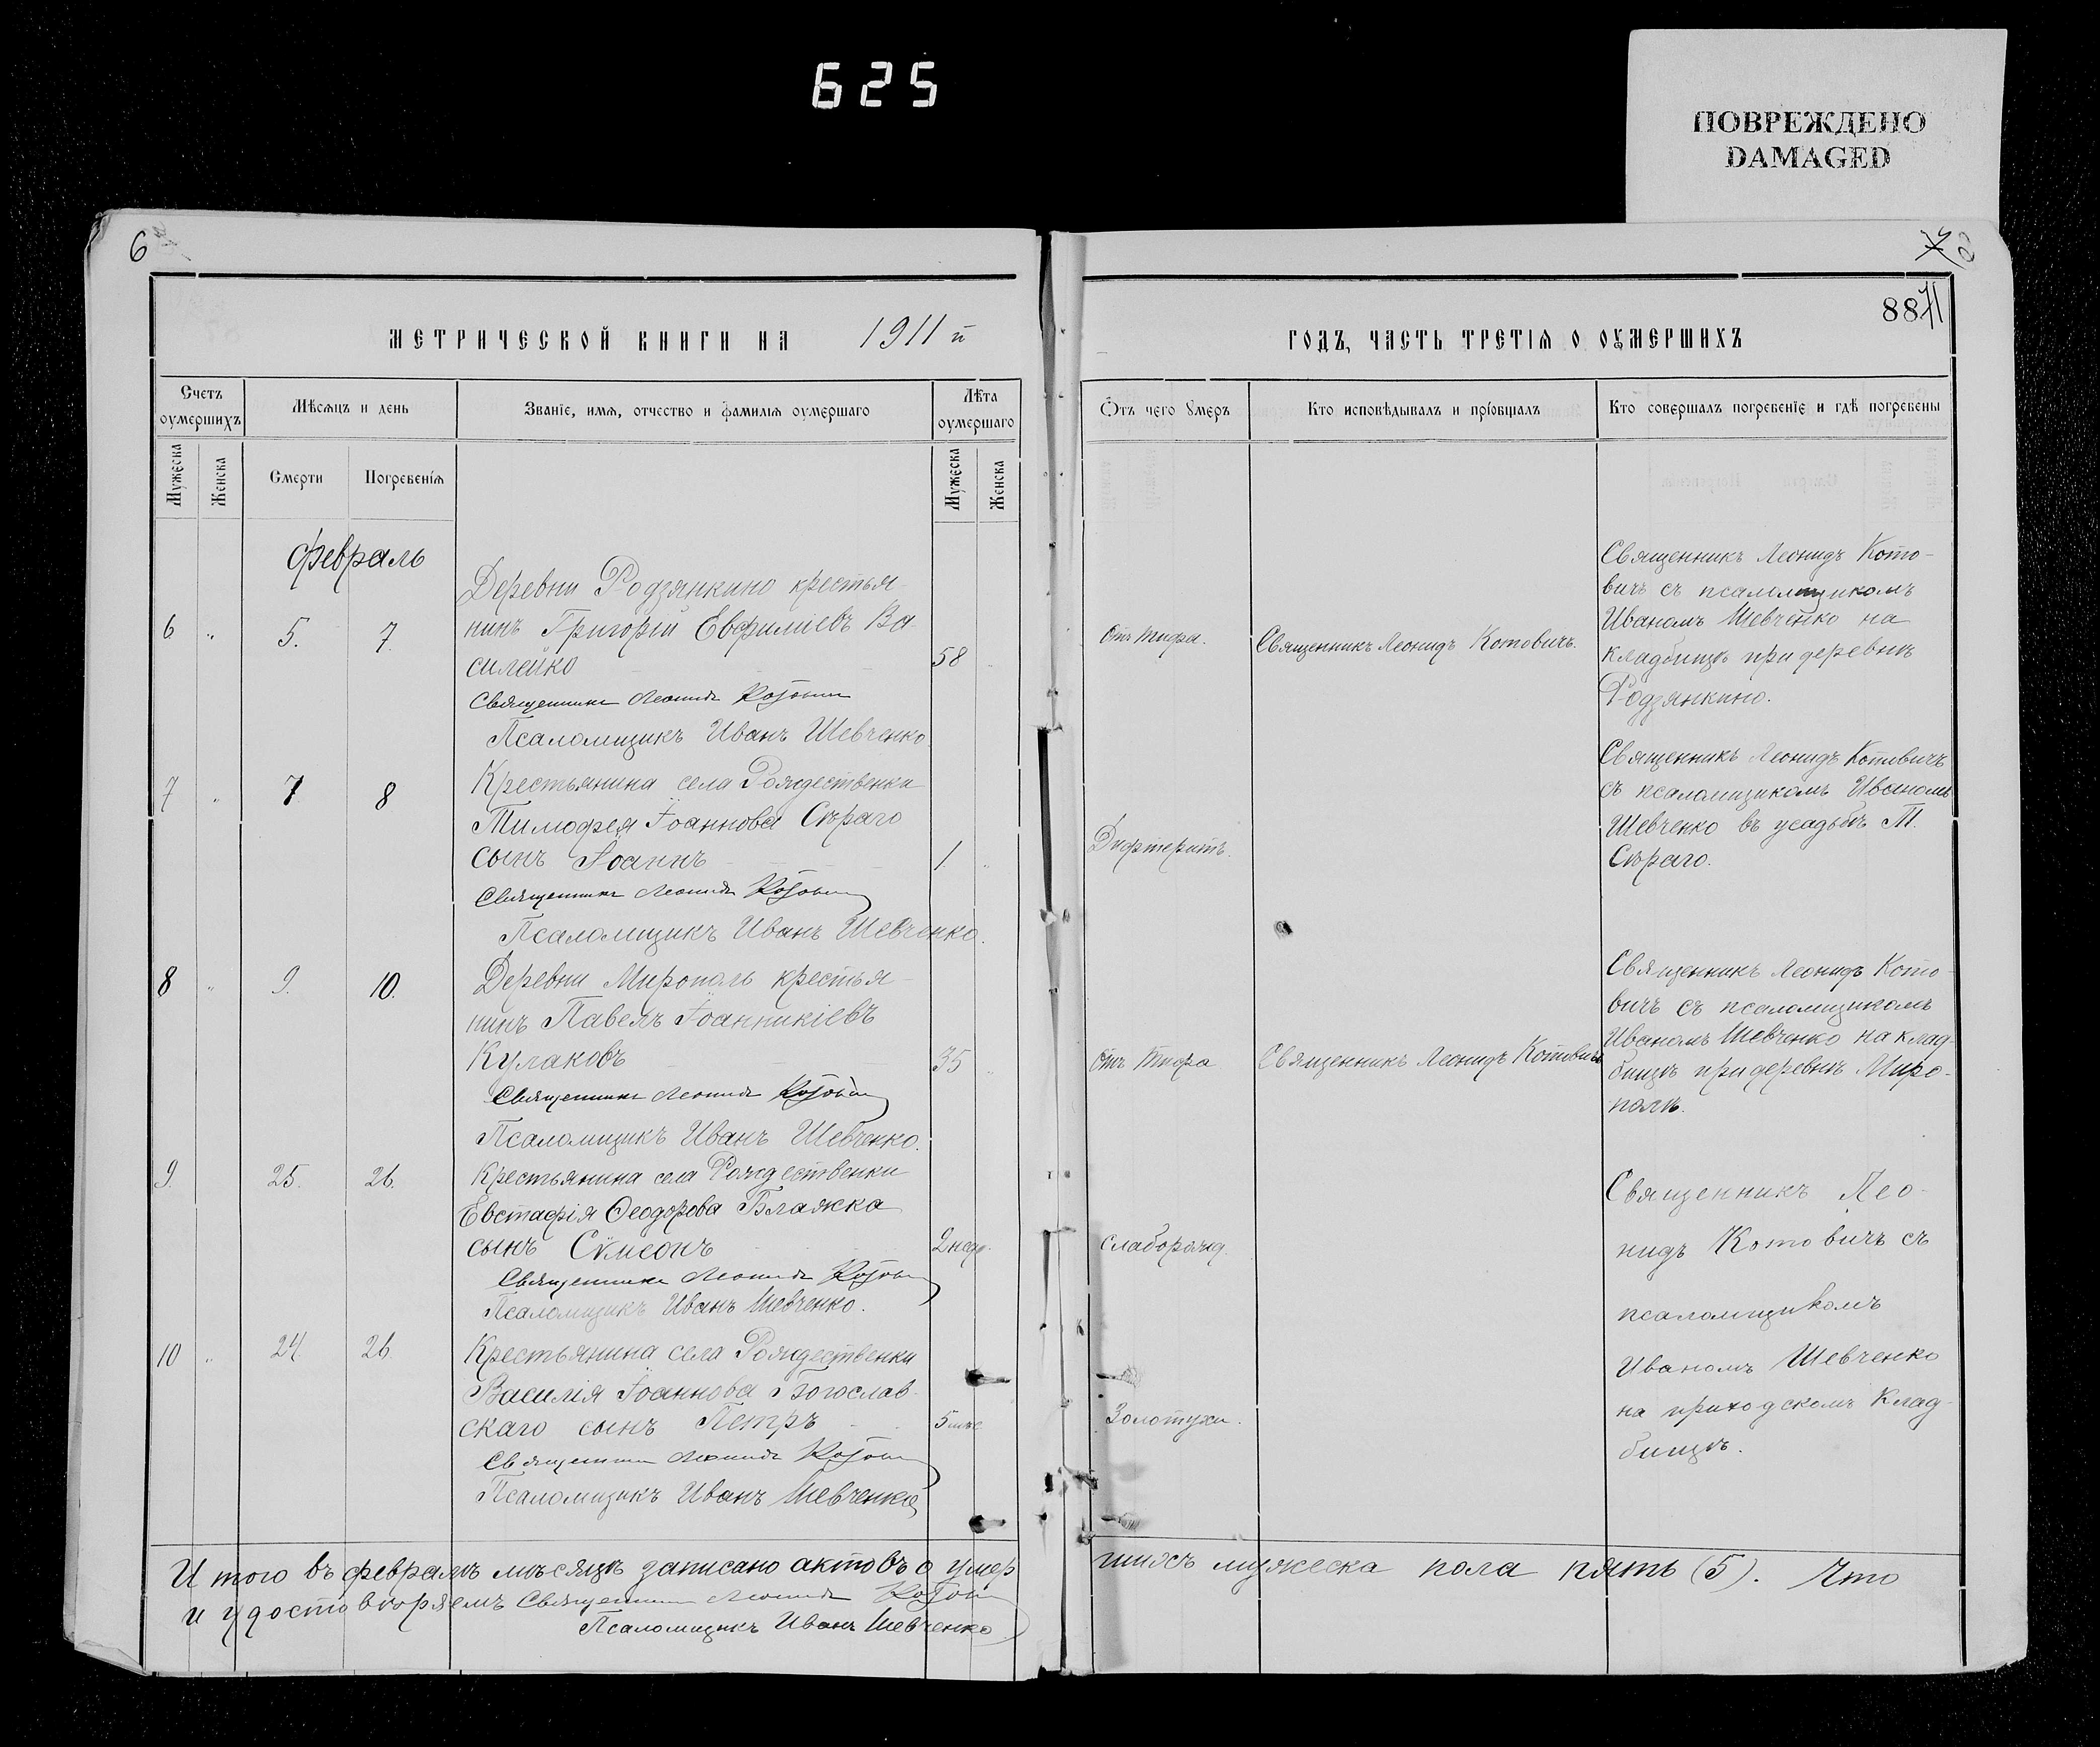 625
ПОВРЕЖДЕНО
DAMAGED
6
8871
МЕТРИЧЕСКОЙ КНИГИ НА 1911 й
ГОДЪ, ЧАСТЬ ТРЕТІѦ О ОУМЕРШИХЪ
Счетъ оумершихъ
Мѣсяцъ и день
Званіе, имѧ, отчество и фамиліѧ оумершаго
Лѣта оумершаго
Ѿтъ чего Ꙋмеръ
Кто исповѣдывалъ и пріобщалъ
Кто совершалъ погребеніе и гдѣ погребены
Мужеска
Женска
Смерти
Погребеніѧ
Мужеска
Женска
февраль
Деревни Родзянкино крестья-
6 " 5. 7. нинъ Григорій Евфиміевъ Ва
силейко 58 "
Священникъ Леонидъ Котовичъ
Псаломщикъ Иванъ Шевченко
Отъ тифа.
Священникъ Леонидъ Котовичъ.
Священникъ Леонидъ Кото-
вичъ съ псаломщикомъ
Иваномъ Шевченко на
кладбищѣ при деревнѣ
Родзянкино.
7 " 7 8 Крестьянина села Рождественки
Тимофея Іоаннова Сѣраго
сынъ Іоаннъ 1. "
Священникъ Леонидъ Котовичъ
Псаломщикъ Иванъ Шевченко.
Дифтеритъ.
Священникъ Леонидъ Котовичъ
съ псаломщикомъ Иваномъ
Шевченко въ усадьбѣ Т.
Сѣраго.
8 " 9. 10. Деревни Мирополь крестья-
нинъ Павелъ Іоанникіевъ
Кулаковъ 35 "
Священникъ Леонидъ Котовичъ
Псаломщикъ Иванъ Шевченко.
Отъ тифа
Священникъ Леонидъ Котовичъ
Священникъ Леонидъ Кото-
вичъ съ псаломщикомъ
Иваномъ Шевченко на клад-
бищѣ при деревнѣ Миро-
полѣ.
9. 25. 26. Крестьянина села Рождественки
Евстафія Ѳеодорова Блажка
сынъ Сѵмеонъ 2 нед.
Священникъ Леонидъ Котовичъ
Псаломщикъ Иванъ Шевченко.
Слаборожд.
10 " 24 26 Крестьянина села Рождественки
Василія Іоаннова Богослав-
скаго сынъ Петръ 5 мѣс.
Священникъ Леонидъ Котовичъ
Псаломщикъ Иванъ Шевченко
Золотухи.
Священникъ Лео-
нидъ Котовичъ съ
псаломщикомъ
Иваномъ Шевченко
на приходскомъ клад-
бищѣ.
Итого въ февралѣ мѣсяцѣ записано актовъ о умер
шихъ мужеска пола пять (5). Что
и удостовѣряемъ Священникъ Леонидъ Котовичъ
Псаломщикъ Иванъ Шевченко